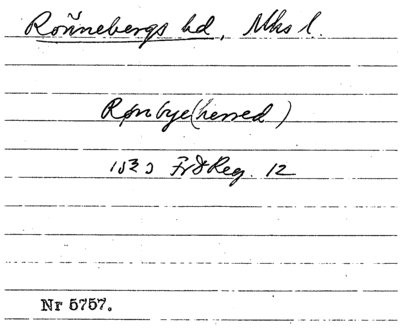 Rönnebergs hd, Mks l.
Rønbye(herred)
1523 FrdReg. 12
Nr 5757.